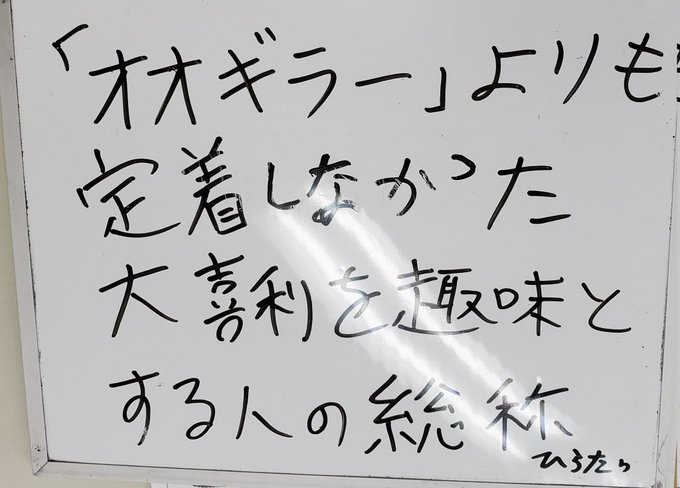 「オオギラー」よりも
定着しなかった
大喜利を趣味と
する人の総称